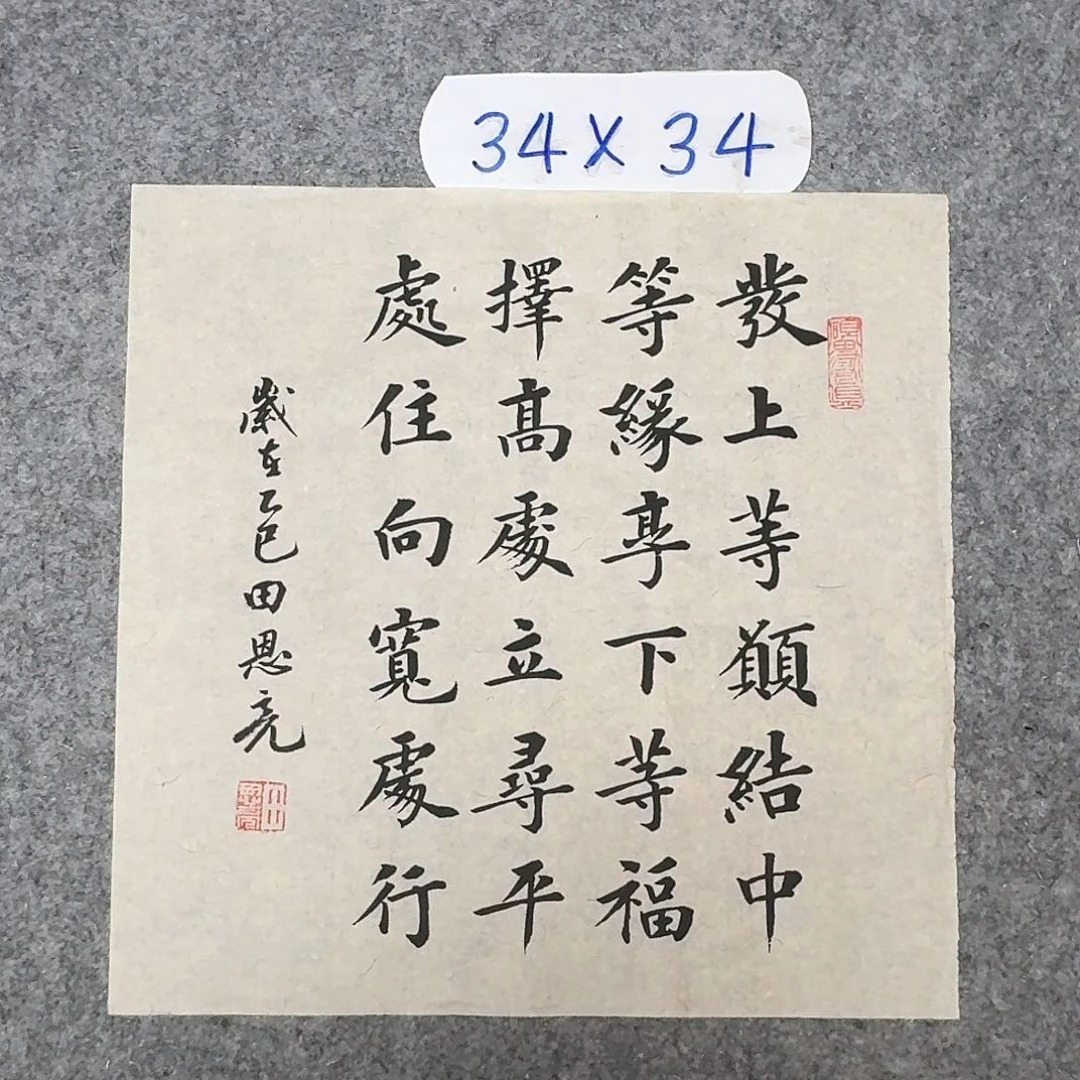 34×34
發上等願結中
等緣享下等福
擇高處立尋平
處住向寬處行
歲在乙巳田恩亮